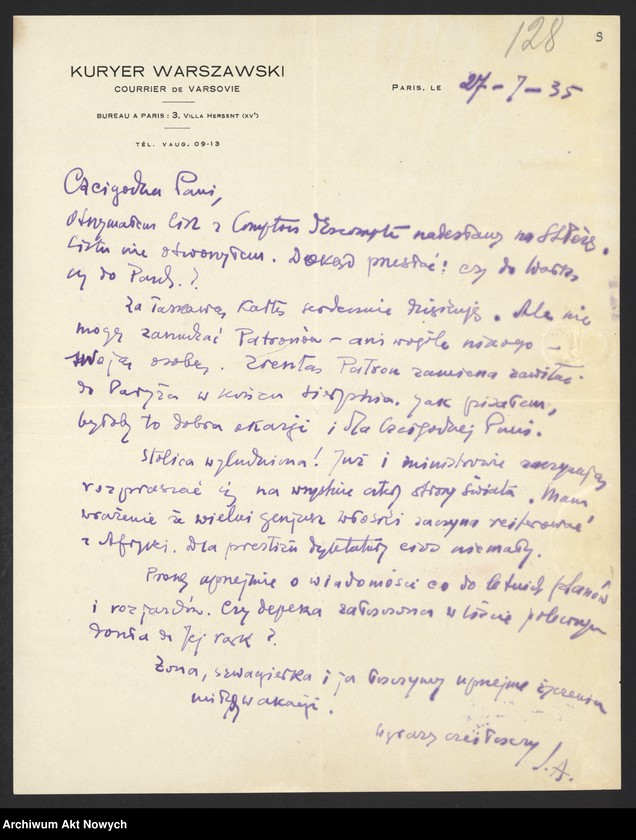 128
9
KURYER WARSZAWSKI
COURRIER DE VARSOVIE
BUREAU A PARIS : 3, VILLA HERSENT (XVᵉ)
TÉL. VAUG. 09-13
PARIS, LE 27-7-35
Czcigodna Pani,
Otrzymałem list z Comptoir d'Escompte nadesłany na
Listu nie otworzyłem. Dokąd przesłać? czy do
czy do ?
Za łaskawą kartę serdecznie dziękuję. Ale nie
mogę zanudzać Patronów - ani wogóle nikogo -
swoją osobą. Zresztą Patron zamierza zawitać
do Paryża w końcu sierpnia. Jak pisałem,
byłoby to dobra okazji i dla Czcigodnej Pani.
Stolica wyludniona! Już i ministrowie zaczynają
rozpraszać się na wszystkie strony świata. Mam
wrażenie że wielki genjusz włoski zaczyna rejterować
z Afryki. Dla prestiżu dyktatury cios niemały.
Proszę uprzejmie o wiadomości co do letnich planów
i rozjazdów. Czy depesza w liście poleconym
doszła do Jej rąk?
Żona, szwagierka i ja łączymy uprzejme życzenia
miłych wakacji.
Wyrazy czci łączy
S.A.
Archiwum Akt Nowych